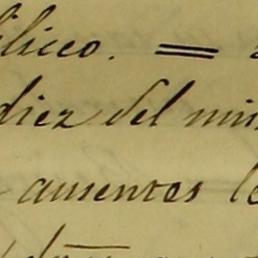 blico. =
diez del mis
ausentes le